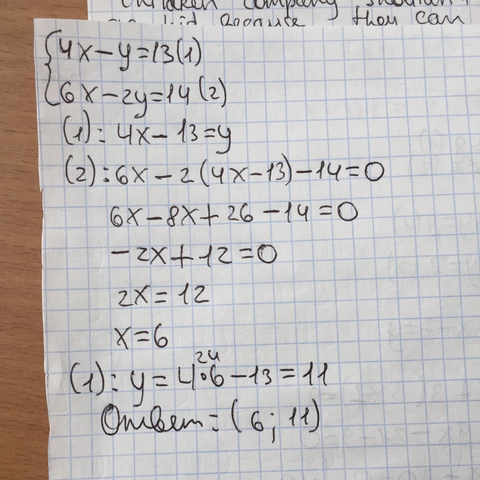 children company shouldn't
because they can
{4x-y=13(1)
6x-2y=14(2)
(1): 4x-13=y
(2): 6x-2(4x-13)-14=0
6x-8x+26-14=0
-2x+12=0
2x=12
x=6
24
(1): y=4•6-13=11
Ответ=(6; 11)